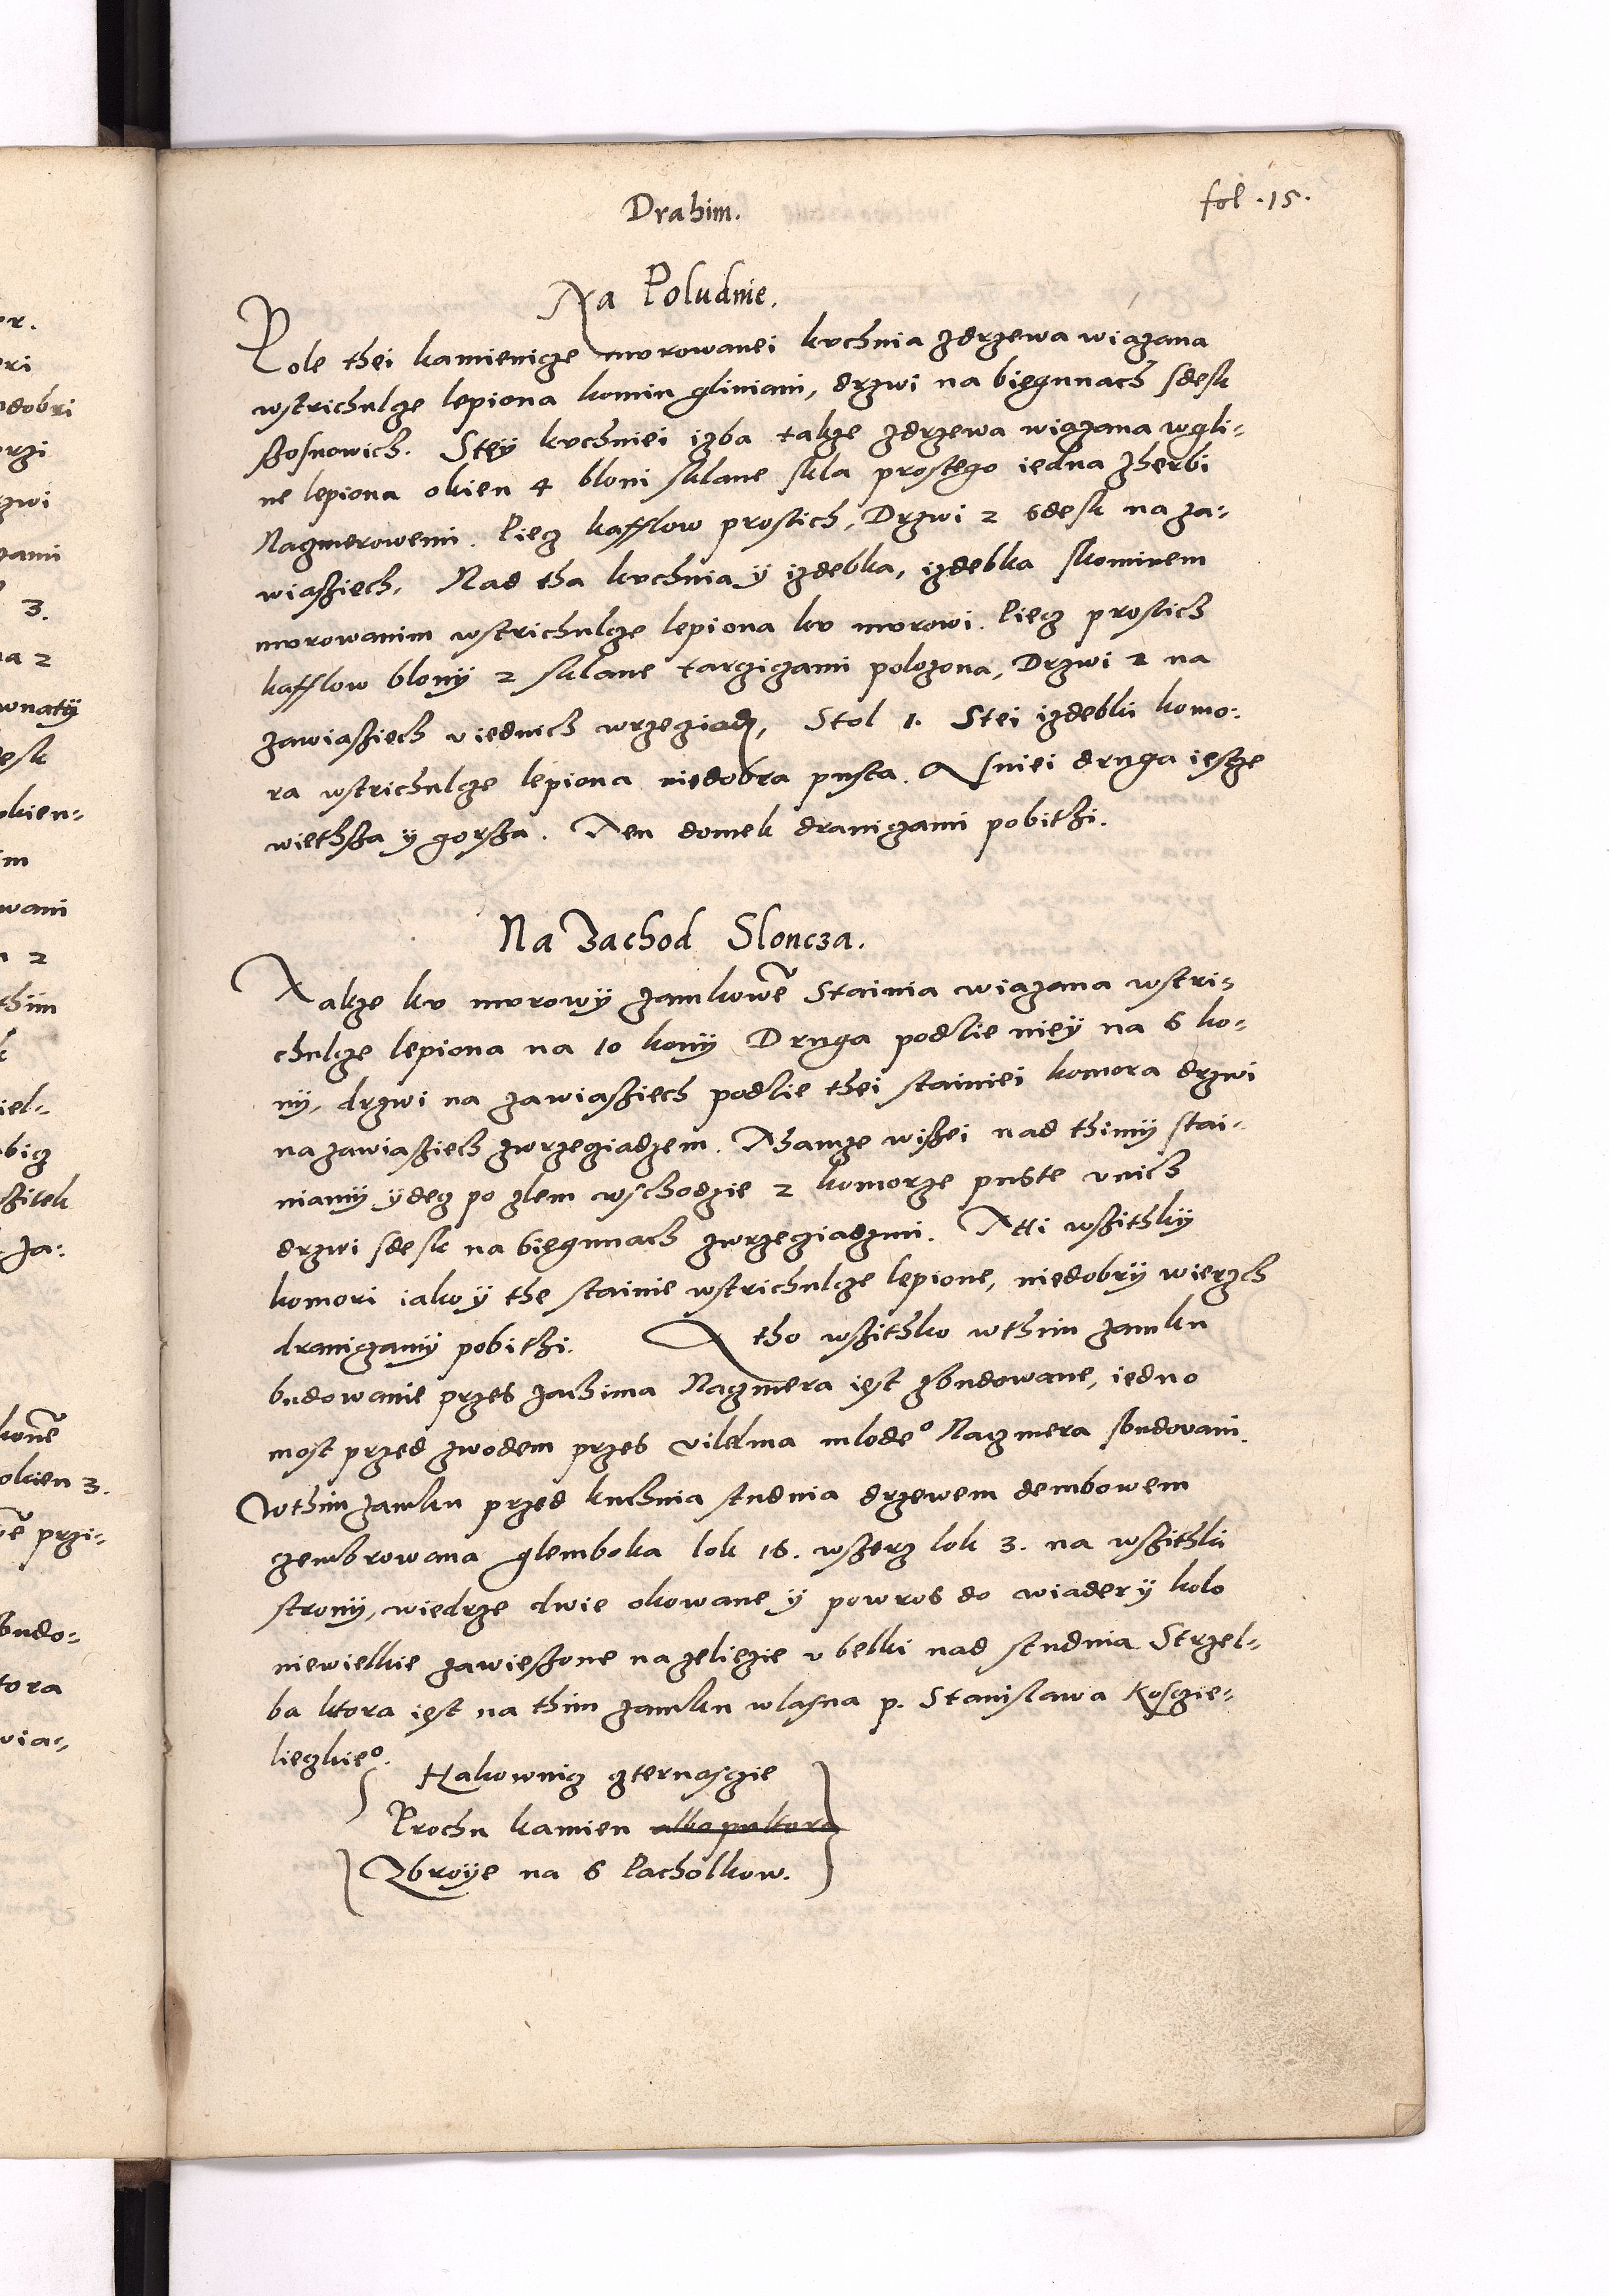 Drahim.
fol .15.
Na Poludnie.
Pole thei kamienicze mvrowanei kvchnia zdrzewa wiązana
wstrichulcze lepiona komin gliniani, drzwi na biegunach sdesk
szosnowich. Stey kvchniei izba takze zdrzewa wiązana wgli-
ne lepiona okien 4 bloni sklane skla prostego iedna zherbi
Nagmerowemi. Piecz kafflow prostich, Drzwi 2 sdesk na za-
wiasziech. Nad tha kvchnia ÿ izdebka, izdebka skominem
mvrowanim wstrichulcze lepiona kv mvrowi. Piecz prostich
kafflow blonÿ 2 sklane targiczami polozona, Drzwi 2 na
zawiasziech v iednich wrzecziadz, Stol 1. Stei izdebki komo-
ra wstrichulcze lepiona niedobra pusta. A sniei druga iescze
wiethsza ÿ gorsza. Ten domek draniczami pobithi.
Na Zachod Sloncza.
Takze kv mvrowÿ zamkowē Stainia wiązana wstri-
chulcze lepiona na 10 konÿ Druga podlie nieÿ na 6 ko-
nÿ, drzwi na zawiasziech podlie thei stainiei komora drzwi
na zawiasziech zwrzecziadzem. Thamze wiszei nad thimÿ stai-
niamÿ ÿdącz po zlem wschodzie 2 komorze puste v nich
drzwi sdesk na biegunach zwrzecziadzmi. A tti wszithkÿ
komori iako ÿ the stainie wstrichulcze lepione, niedobrÿ wierzch
draniczamÿ pobithi. A tho wszithko wthim zamku
budowanie przes Jachima Nagmera iest zbudowane, iedno
most przed zwodem przes Vilelma mlodeᵒ Nagmera sbudovani.
Wthim zamku przed kuchnia studnia drzewem dembowem
czembrowana glemboka lok 16. wszerz lok 3. na wszithki
stronÿ, wiedrze dwie okowane ÿ powros do wiader ÿ kolo
niewielkie zawieszone na zeliezie v belki nad studnia Strzel-
ba ktora iest na thim zamku wlasna p. Stanislawa Koscie-
lieczkieᵒ.
Hakownicz czternascie
Prochu kamien albo pultora
Zbroÿe na 6 Pacholkow.